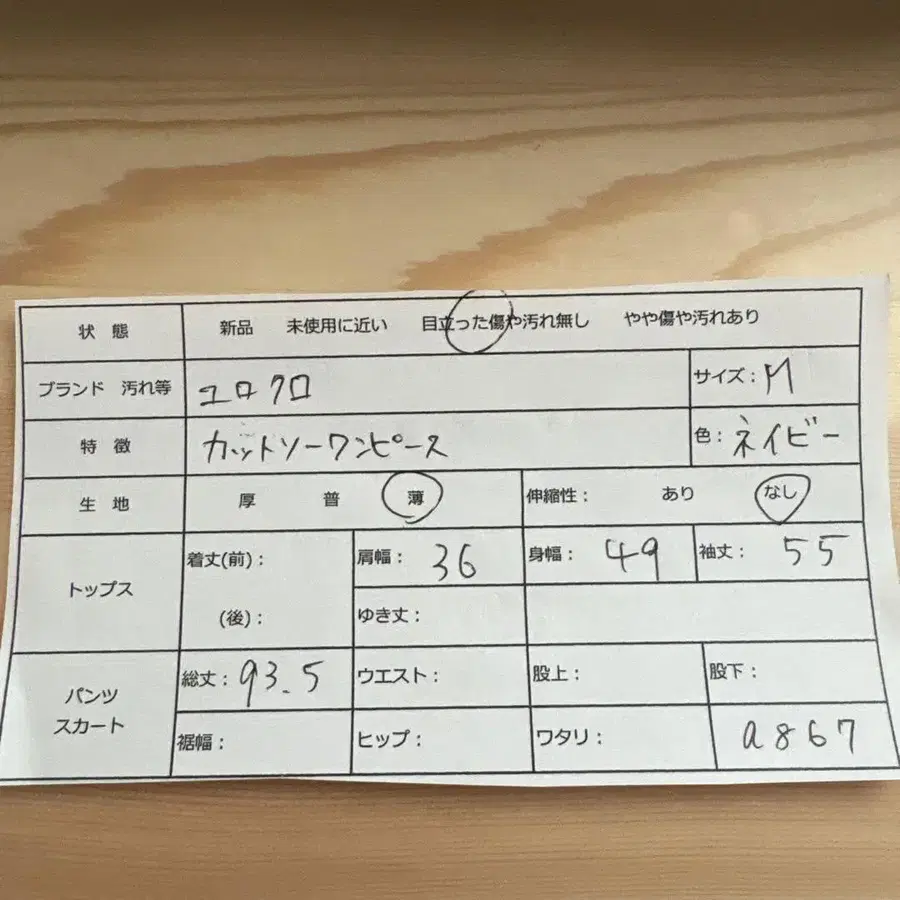 状態 新品 未使用に近い 目立った傷や汚れ無し やや傷や汚れあり
ブランド 汚れ等 ユロクロ サイズ: M
特徴 カットソーワンピース 色: ネイビー
生地 厚 普 薄 伸縮性: あり なし
トップス 着丈(前): 肩幅: 36 身幅: 49 袖丈: 55
(後): ゆき丈:
パンツ スカート 総丈: 93.5 ウエスト: 股上: 股下:
裾幅: ヒップ: ワタリ: a867